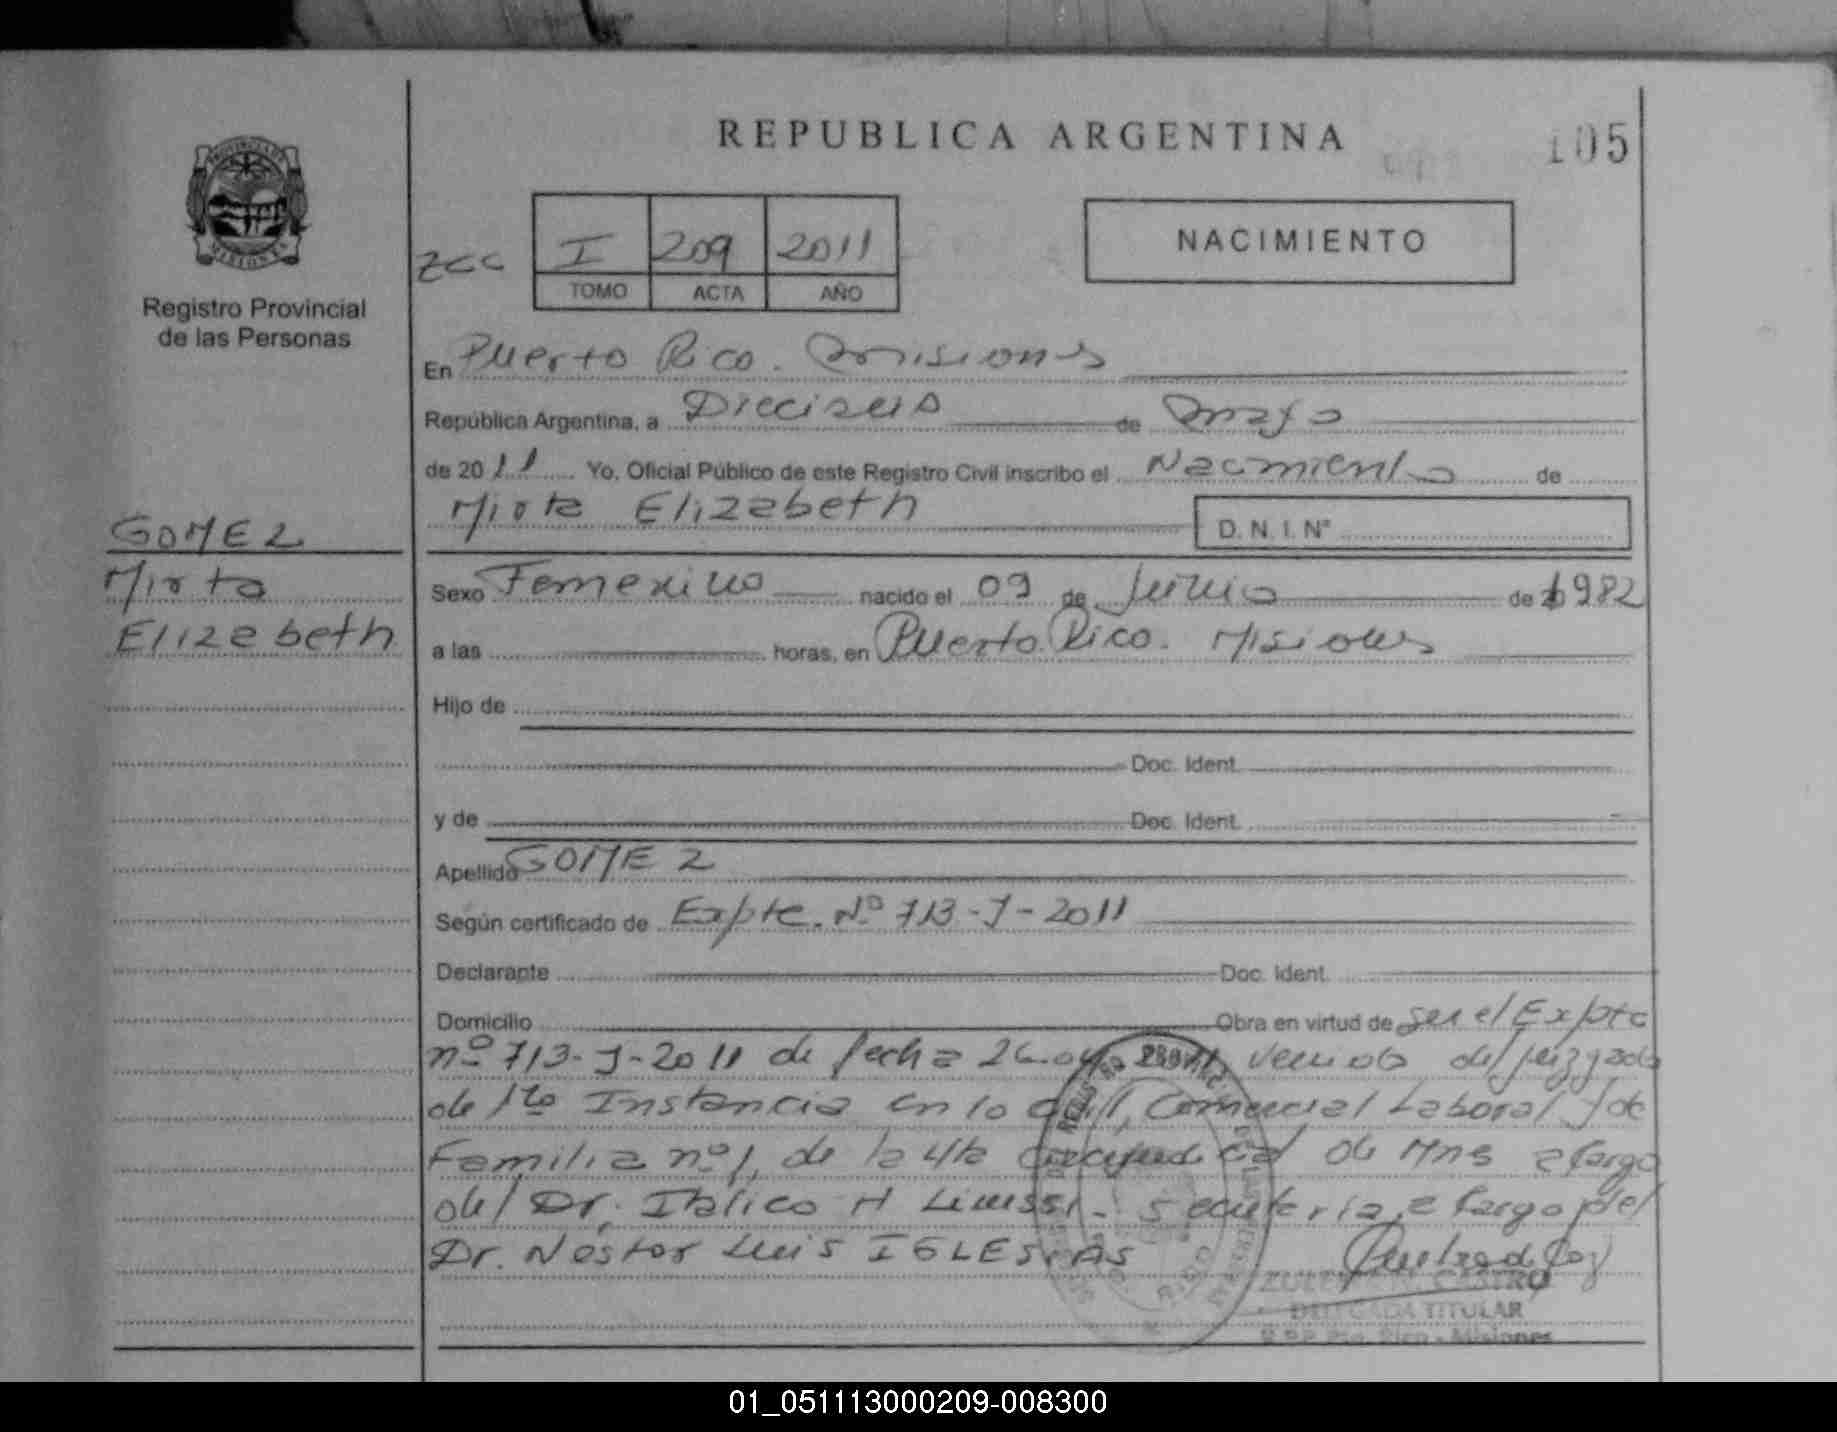 REPUBLICA ARGENTINA
105
PROVINCIA DE
MISIONES
Registro Provincial
de las Personas
zcc
I 209 2011
TOMO ACTA AÑO
NACIMIENTO
En Puerto Rico. Misiones
República Argentina, a Dieciseis de mayo
de 2011 Yo, Oficial Público de este Registro Civil inscribo el Nacimiento de
Mirta Elizabeth D. N. I. N°
GOMEZ
Mirta
Elizabeth
Sexo Femenino nacido el 09 de Junio de 1982
a las horas, en Puerto Rico. Misiones
Hijo de
Doc. Ident.
y de Doc. Ident.
Apellido GOMEZ
Según certificado de Expte. Nº 713-J-2011
Declarante Doc. Ident.
Domicilio Obra en virtud de ser el Expte
nº 713-J-2011 de fecha 26.04 venido del juzgado
de 1ra Instancia en lo Civil, Comercial Laboral y de
Familia nº 1, de la 4ta de Mns a cargo
del Dr. Italico H - Secreteria a cargo del
Dr. Nestor Luis IGLESIAS
CASTRO
DELEGADA TITULAR
R.P.P. Pto. Rico - Misiones
01_051113000209-008300